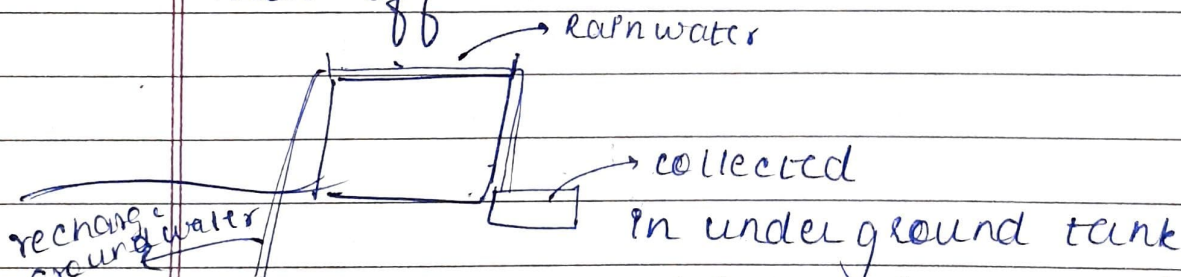 Rain water
collected
in under ground tank
recharge
ground water